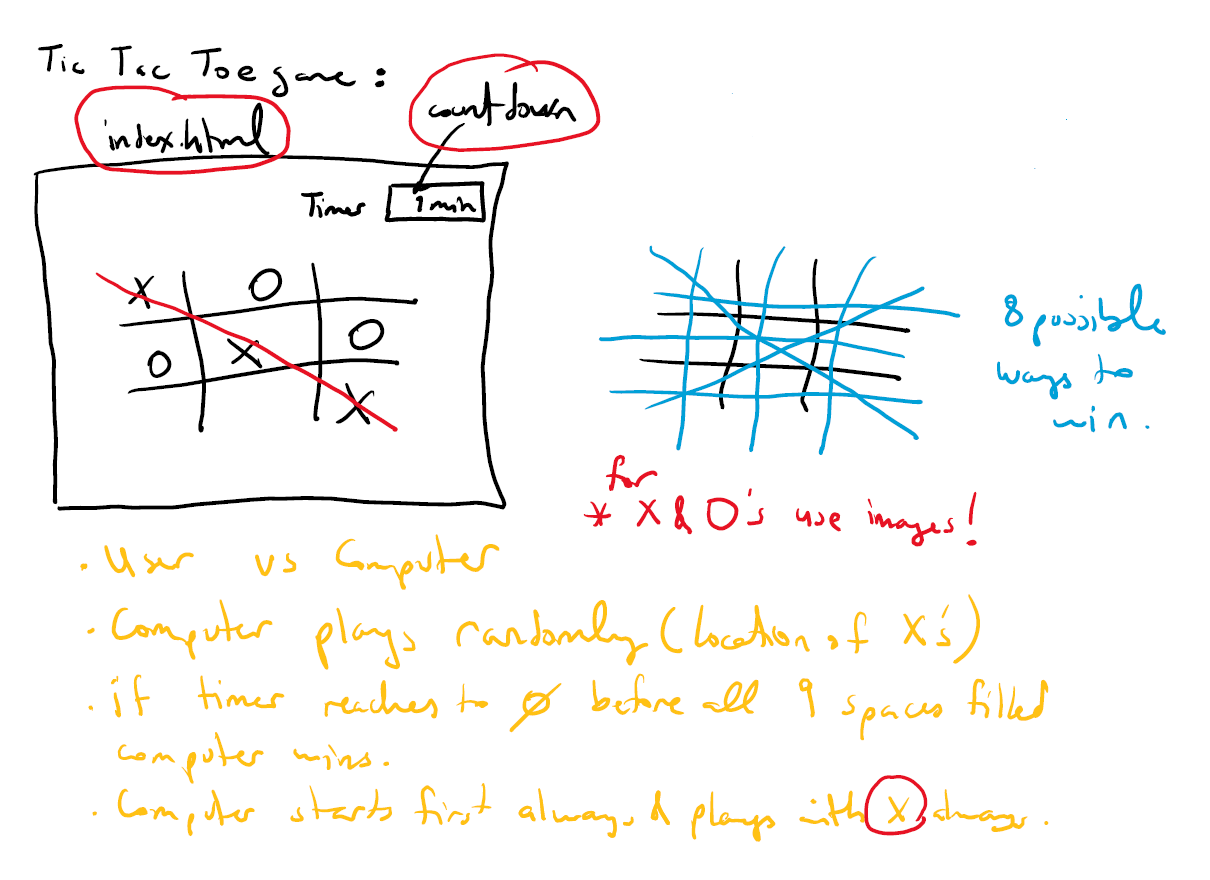 Tic Tac Toe game :
index.html
countdown
Timer 1 min
X O
O X O
X
8 possible
ways to
win.
for
* X & O's use images!
. User vs Computer
. Computer plays randomly (location of X's)
. if timer reaches to 0 before all 9 spaces filled
computer wins.
. Computer starts first always & plays with X always.